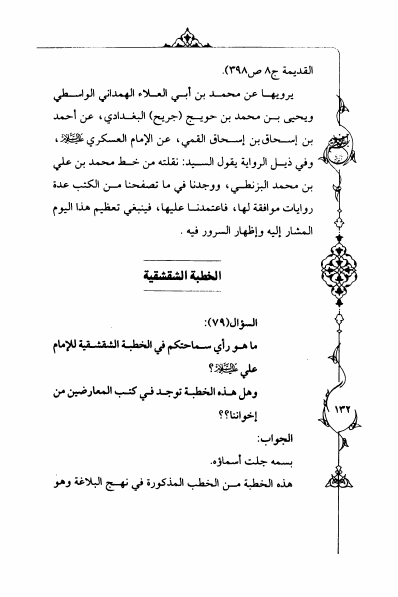 القديمة ج٨ ص٣٩٨).
يرويها عن محمد بن أبي العلاء الهمداني الواسطي
ويحيى بـن محمد بن حويج (جريح) البغـدادي، عن أحمد
بن إسـحاق بن إسـحاق القمي، عن الإمام العسكري ﵇،
وفي ذيـل الرواية يقول السيد: نقلته من خط محمد بن علي
بن محمد البزنطي، ووجدنا في ما تصفحنا مـن الكتب عدة
روايات موافقة لها، فاعتمدنـا عليها، فينبغي تعظيم هذا اليوم
المشار إليه وإظهار السرور فيه .
الخطبة الشقشقية
السؤال(٧٩):
ما هـو رأي سـماحتكم في الخطبـة الشقشـقية للإمام
علي ﵇؟
وهل هـذه الخطبـة توجـد فـي كتـب المعارضين من
إخواننا؟؟
الجواب:
بسمه جلت أسماؤه.
هذه الخطبة مـن الخطب المذكورة في نهـج البلاغة وهو
١٣٢